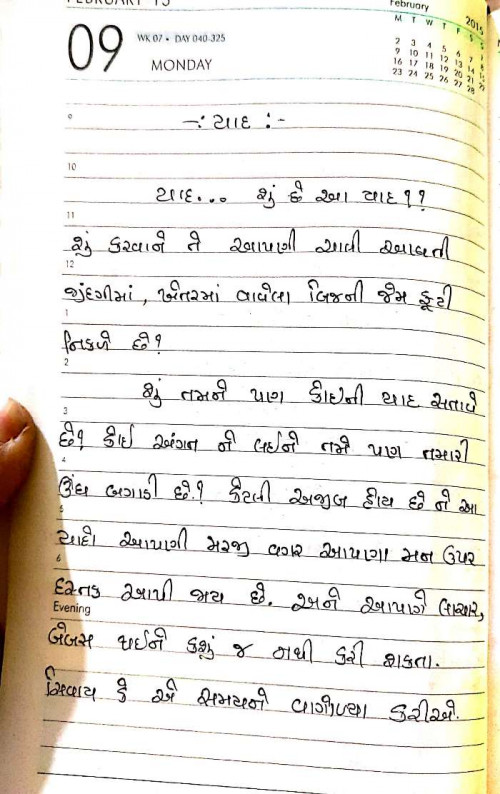 FEBRUARY 15
February 2015
M T W T F S S
2 3 4 5 6 7 8
9 10 11 12 13 14 15
16 17 18 19 20 21 22
23 24 25 26 27 28
09 WK 07 • DAY 040-325
MONDAY
9
-: યાદ :-
10
યાદ... શું છે આ યાદ ??
11
શું કરવાને તે આપણી આવી
12
જીંદગીમાં, ખેતરમાં વાવેલા બિજની જેમ ફૂટી
1
નિકળે છે?
2
શું તમને પણ કોઈની યાદ સતાવે
3
છે? કોઈ અંગત ને લઈને તમે પણ તમારી
4
ઊંઘ બગાડી છે.? કેટલી અજીબ હોય છે ને આ
5
યાદો આપણી મરજી વગર આપણા મન ઉપર
6
દસ્તક આપી જાય છે. અને આપણે લાચાર,
Evening
બેબસ થઈને કશું જ નથી કરી શકતા.
સિવાય કે એ સમયને વાગોળ્યા કરીએ.